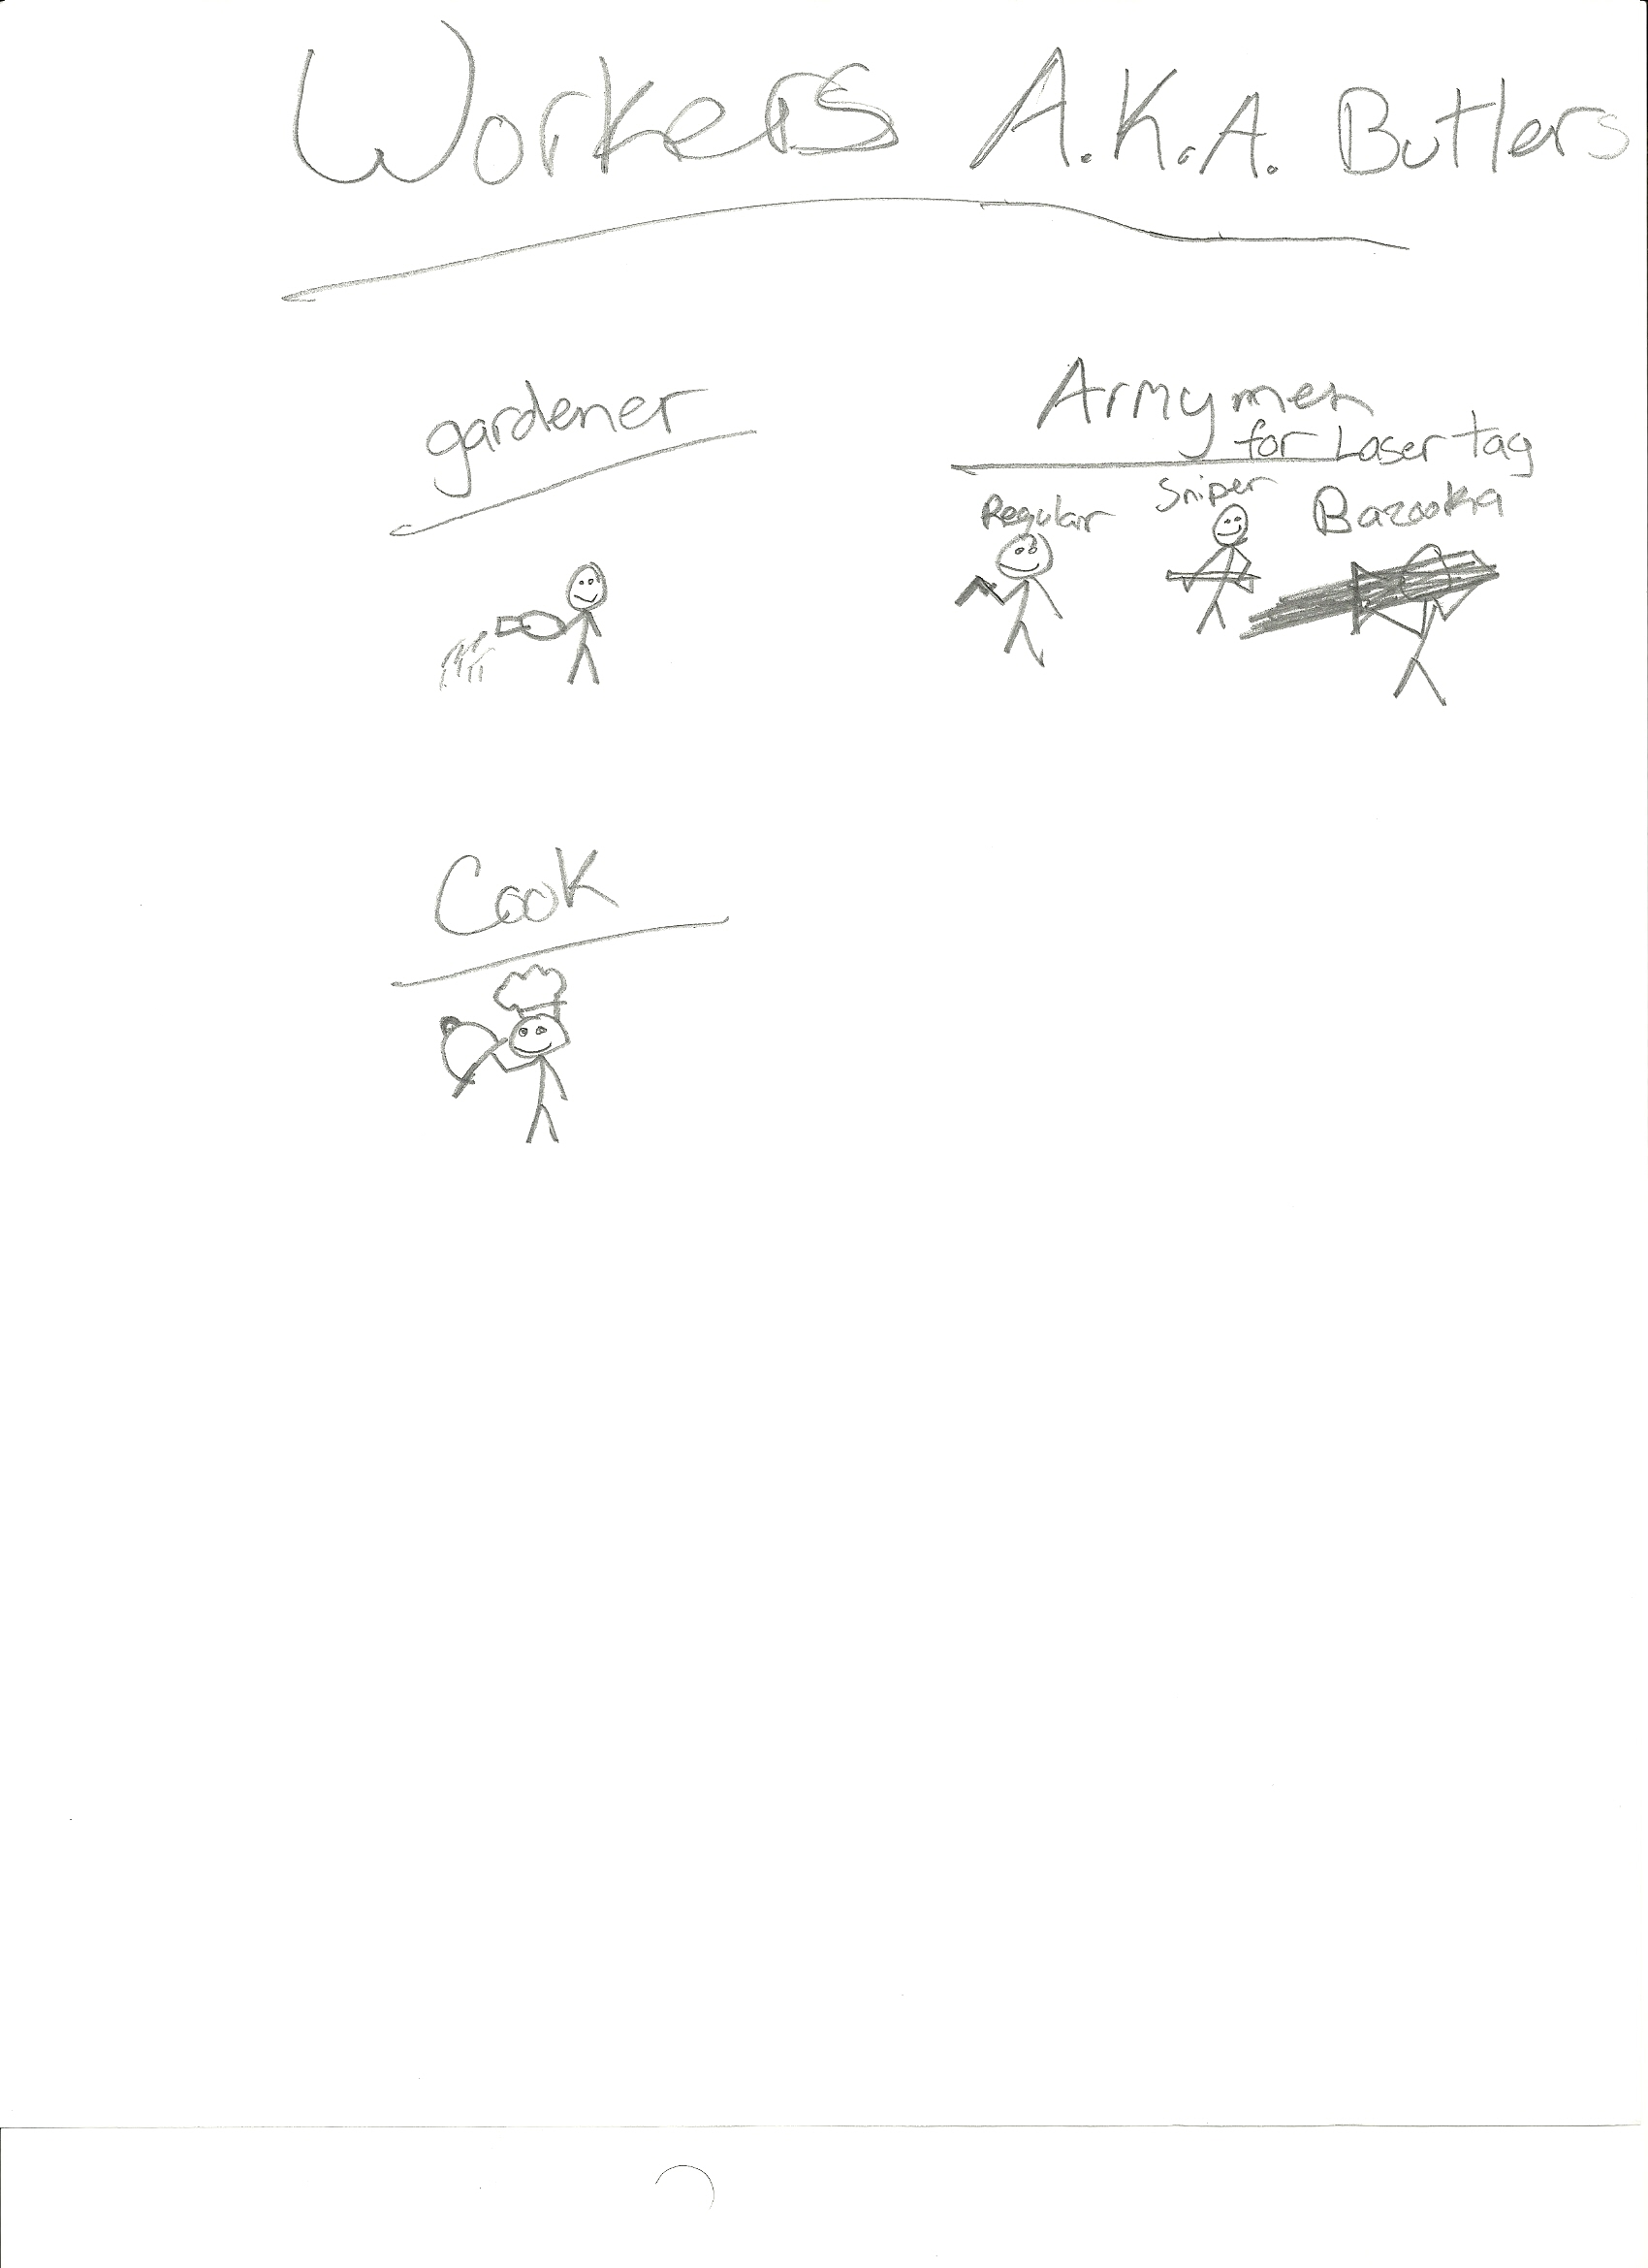 Workers A.K.A. Butlers
gardener
Army men
for Laser tag
Regular
Sniper
Bazooka
Cook